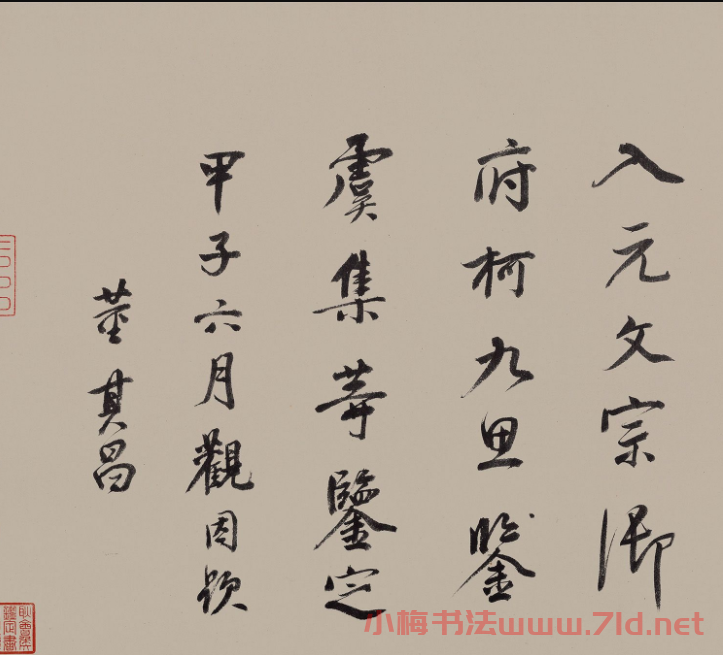 入元文宗御
府柯九思鑒
虞集等鑒定
甲子六月觀因題
董其昌
小梅书法www.7ld.net